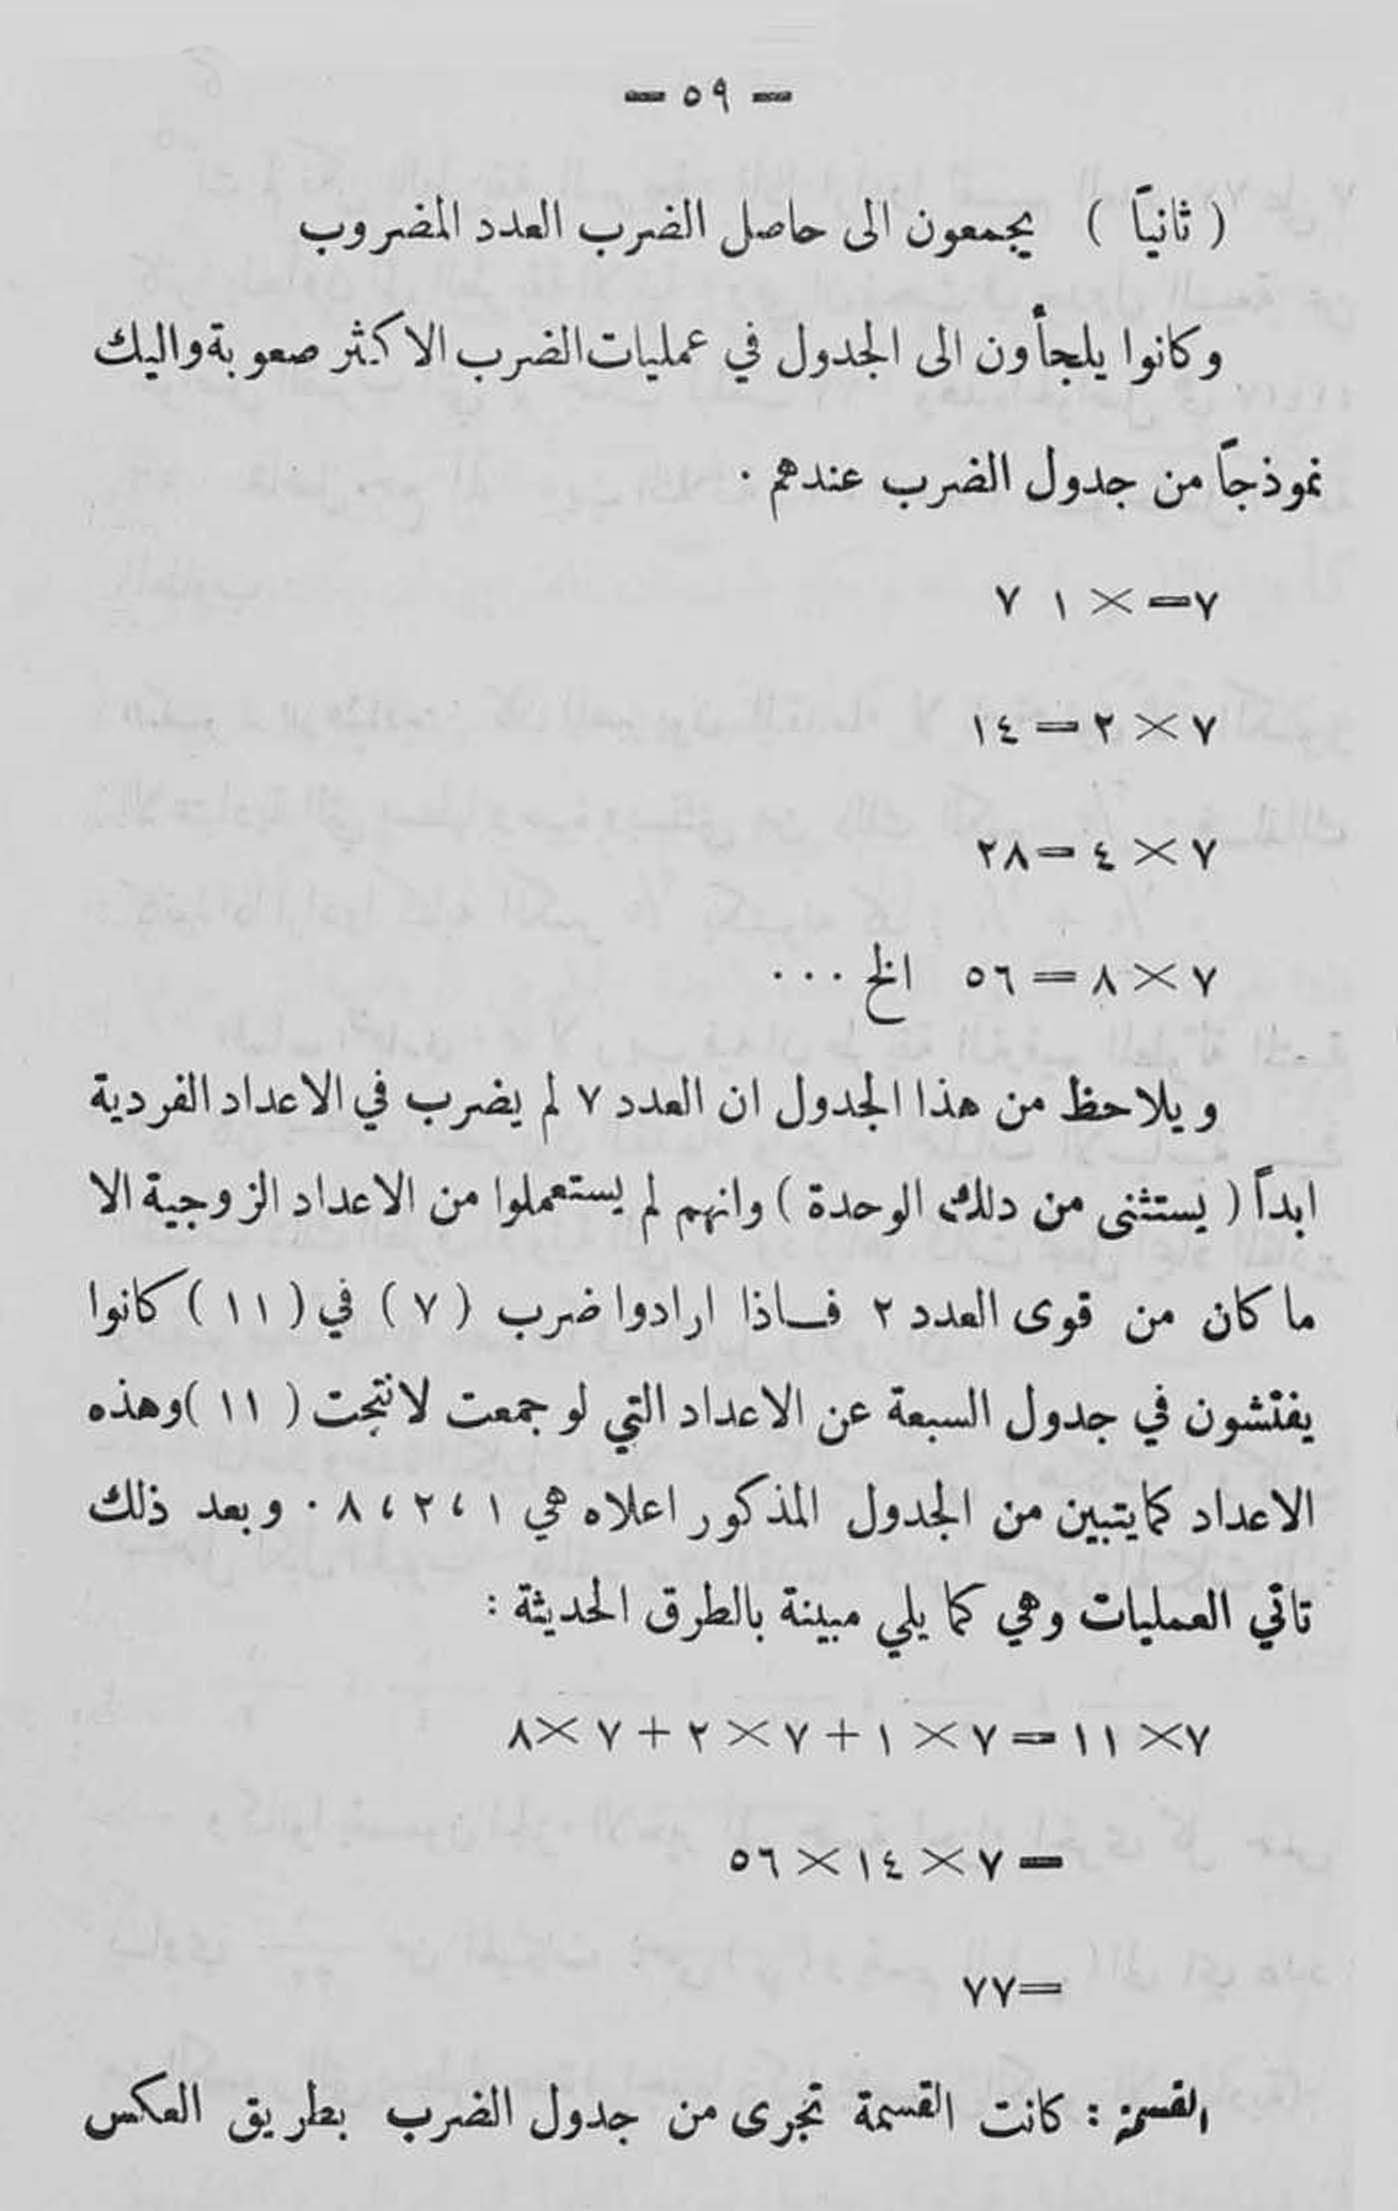 — ٥٩ —
( ثانياً ) يجمعون الى حاصل الضرب العدد المضروب
وكانوا يلجأون الى الجدول في عمليات الضرب الاكثر صعوبة واليك
نموذجاً من جدول الضرب عندهم .
٧ — × ١ ٧
٧ × ٢ = ١٤
٧ × ٤ = ٢٨
٧ × ٨ = ٥٦ الخ ...
ويلاحظ من هذا الجدول ان العدد ٧ لم يضرب في الاعداد الفردية
ابداً ( يستثنى من دلك الوحدة ) وانهم لم يستعملوا من الاعداد الزوجية الا
ما كان من قوى العدد ٢ فاذا ارادوا ضرب ( ٧ ) في ( ١١ ) كانوا
يفتشون في جدول السبعة عن الاعداد التي لو جمعت لانتجت ( ١١ ) وهذه
الاعداد كما يتبين من الجدول المذكور اعلاه هي ١ ، ٢ ، ٨ . وبعد ذلك
تاتي العمليات وهي كما يلي مبينة بالطرق الحديثة :
٧ × ١١ = ٧ × ١ + ٧ × ٢ + ٧ × ٨
= ٧ × ١٤ × ٥٦
= ٧٧
القسمة : كانت القسمة تجرى من جدول الضرب بطريق العكس